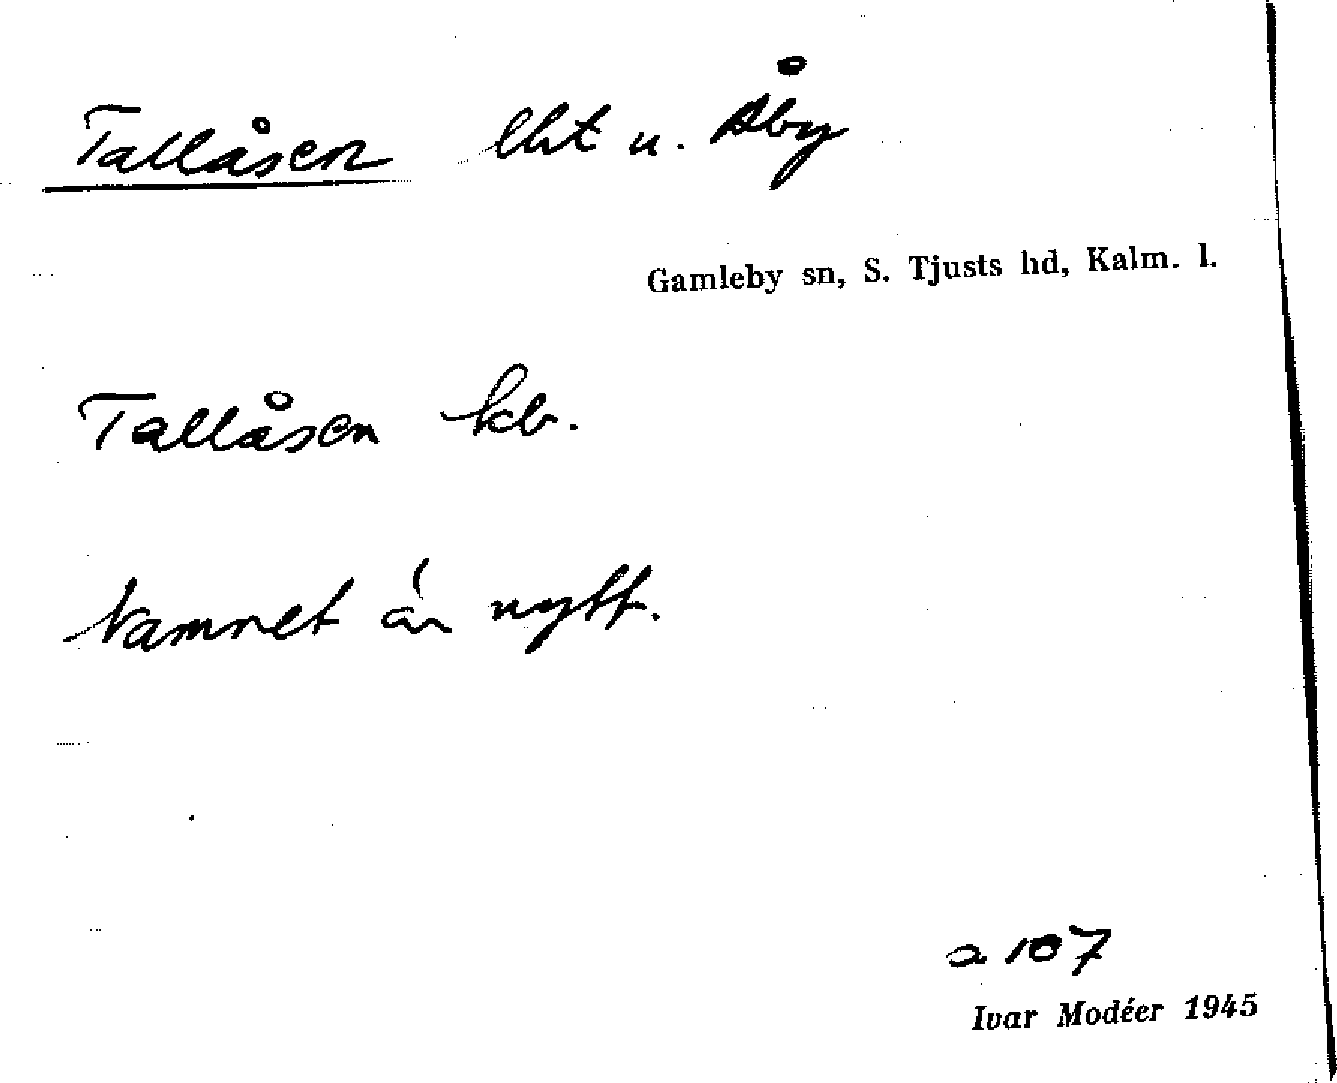 Tallåsen lht u. Åby
Gamleby sn, S. Tjusts hd, Kalm. l.
Tallåsen kb.
Namnet är nytt.
a 107
Ivar Modéer 1945